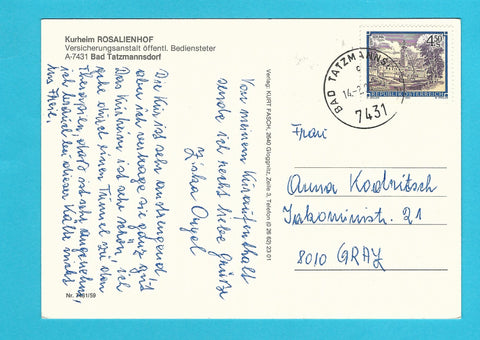 Kurheim ROSALIENHOF
Versicherungsanstalt öffentl. Bediensteter
A-7431 Bad Tatzmannsdorf
Von meinem Kuraufenthalt
sende ich recht liebe Grüße
Ziska Angel
Die Kur ist sehr anstrengend,
aber ich vertrage sie ganz gut
Das Kurheim ist sehr schön, ich
gehe durch einen Tunnel zu den
Therapien, daß ist sehr angenehm,
ich brauch bei dieser Kälte nicht
ins Freie.
Nr. 7481/59
Verlag: KURT FASCH, 2640 Gloggnitz, Zeile 3, Telefon (0 26 62) 23 01
4.50
REPUBLIK ÖSTERREICH
BAD TATZMANNSD
14.-2.
7431
Frau
Anna Kodritsch
Jakoministr. 21
8010 GRAZ